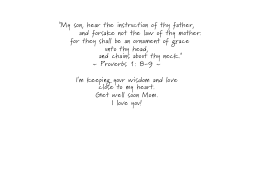 "My son, hear the instruction of thy father,
and forsake not the law of thy mother:
for they shall be an ornament of grace
unto thy head,
and chains about thy neck."
~ Proverbs 1: 8-9 ~
I'm keeping your wisdom and love
close to my heart.
Get well soon Mom.
I love you!